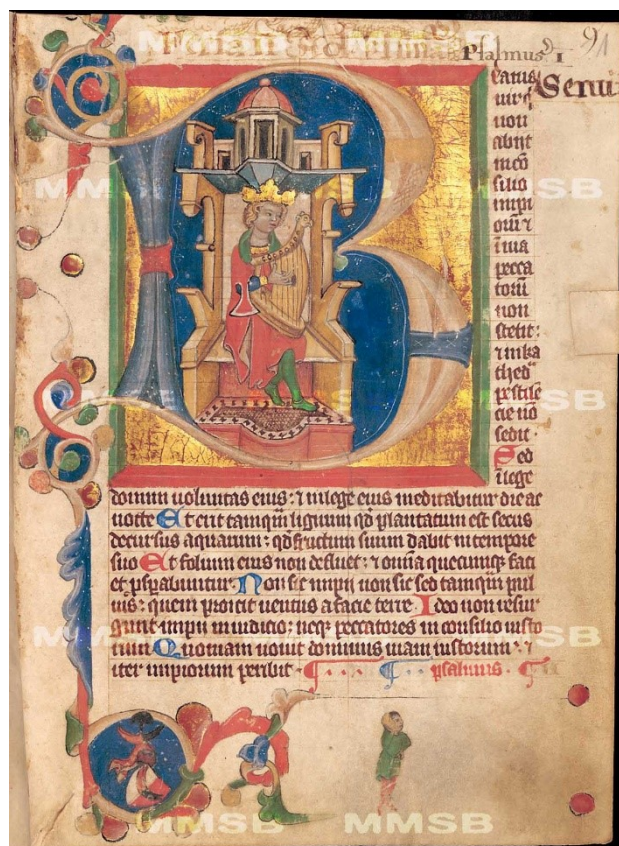 Psalmus I
91
Seruı
eatus
uir q̄
non
abijt
in cō
silio
impi
orū ⁊
ī uia
pecca
torū
non
stetit:
⁊ in ka
thed
pestilē
cie nō
sedit.
Sed
ī lege
domini uoluntas eius: ⁊ in lege eius meditabitur die ac
nocte Et erit tamqm̄ lignum qd̄ plantatum est secus
decursus aquarum: qd̄ fructum suum dabit in tempore
suo Et folium eius non defluet: ⁊ omīa quecumqꝫ faci
et ꝓsꝑabuntur. Non sic impij non sic sed tamqm̄ pul
uis: quem proicit uentus a facie terre. Ideo non resur
gunt impij in iudicio: neqꝫ peccatores in consilio iusto
rum Quoniam nouit dominus uiam iustorum: ⁊
iter impiorum peribit. psalmus.
MMSB
MMSB
MMSB
MMSB
MMSB
MMSB
MMSB
MMSB